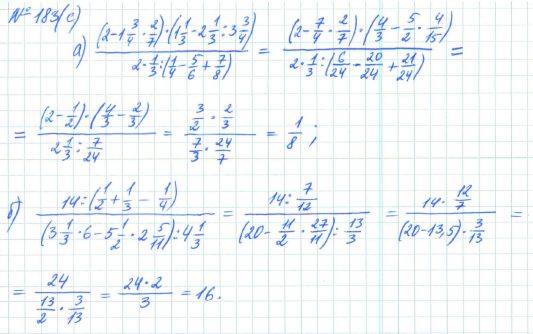 № 183(с)
а) (2-1 3/4 · 2/7) · (1 1/3 - 2 1/3 : 3 3/4) / 2 · 1/3 : (1/4 - 5/6 + 7/8) = (2 - 7/4 · 2/7) · (4/3 - 5/2 · 4/15) / 2 · 1/3 : (6/24 - 20/24 + 21/24) =
= (2 - 1/2) · (4/3 - 2/3) / 2 1/3 : 7/24 = 3/2 · 2/3 / 7/3 · 24/7 = 1/8 ;
б) 14 : (1/2 + 1/3 - 1/4) / (3 1/3 · 6 - 5 1/2 · 2 5/11) : 4 1/3 = 14 : 7/12 / (20 - 11/2 · 27/11) : 13/3 = 14 · 12/7 / (20 - 13,5) · 3/13 =
= 24 / 13/2 · 3/13 = 24 · 2 / 3 = 16.